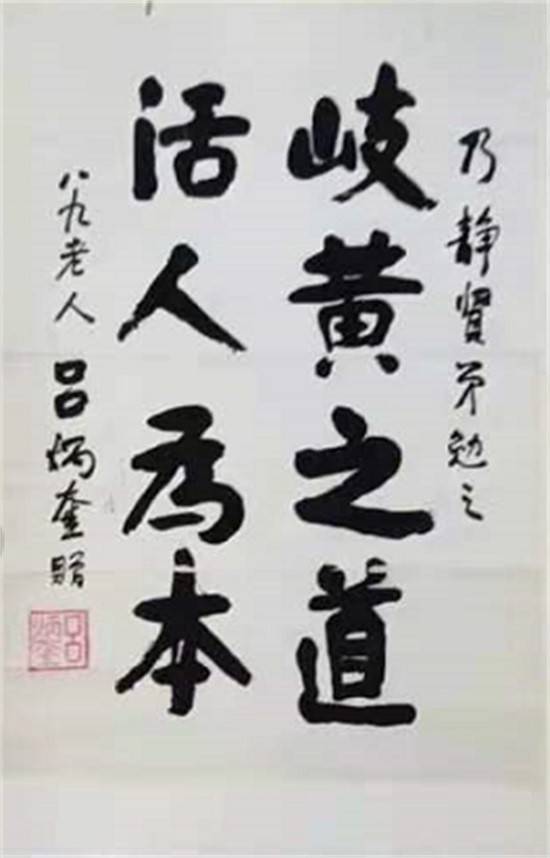 乃静贤弟勉之
岐黄之道
活人为本
八九老人 吕炳奎赠
吕炳奎